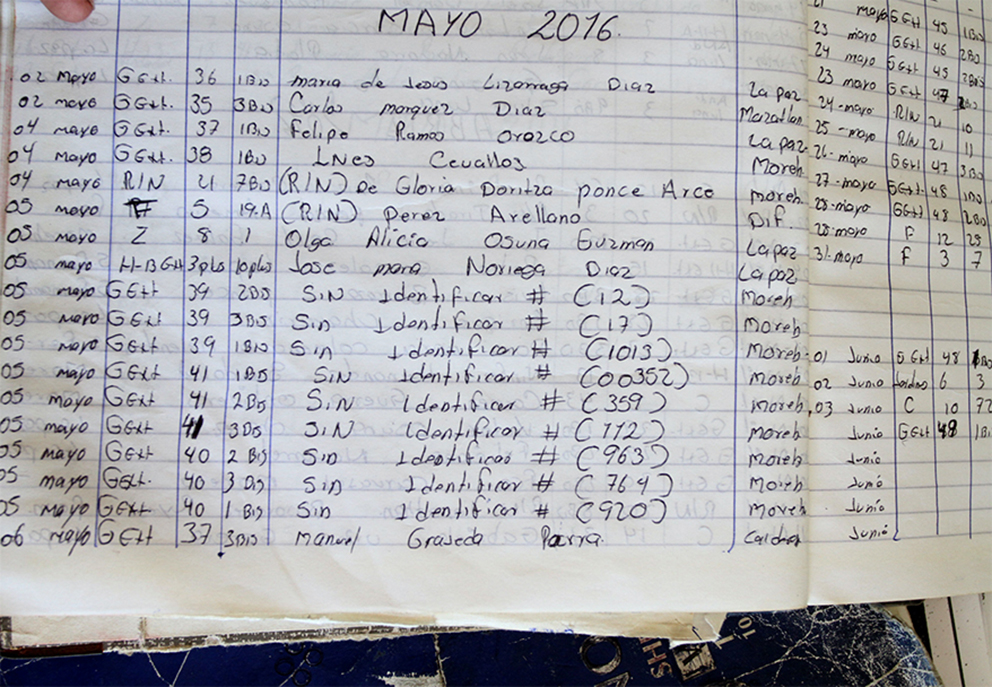 MAYO 2016.
02 mayo GExt. 36 1Bis maria de Jesus Lizarraga Diaz La paz
02 mayo GExt. 35 3Bis Carlos marquez Diaz Mazatlan
04 mayo GExt. 37 1Bis Felipe Ramos Orozco La paz
04 mayo GExt. 38 1Bis INes Cevallos Moreh
04 mayo R/N 21 7Bis (R/N) De Gloria Doritza ponce Arce moreh
05 mayo 5 19.A (R/N) perez Arellano Dif.
05 mayo Z 8 1 Olga Alicia Osuna Guzman La paz
05 mayo H-BGH 3plus 10plus Jose maria Noriega Diaz La paz
05 mayo GExt 39 2Bis SiN Identificar # (12) Moreh
05 mayo GExt 39 3Bis Sin Identificar # (17) Moreh
05 mayo GExt 39 1Bis Sin Identificar # (1013) Moreh
05 mayo GExt 41 1Bis SiN Identificar # (00352) Moreh
05 mayo GExt 41 2Bis SiN Identificar # (359) Moreh
05 mayo GExt 41 3Bis SiN Identificar # (112) Moreh
05 mayo GExt 40 2 Bis Sin Identificar # (963) Moreh
05 mayo GExt. 40 3 Bis Sin Identificar # (764) Moreh
05 mayo GExt 40 1 Bis Sin Identificar # (920) Moreh
06 mayo GExt 37 3Bis Manuel Graseda Parra.
21 mayo GExt 45 1Bis
23 mayo GExt 46 2Bis
24 mayo GExt 45 2Bis
23 mayo GExt 47
24-mayo R/N 21 10
25-mayo R/N 21 11
26-mayo GExt 47 3Bis
27-mayo GExt 48
28-mayo GExt 48 2Bis
28-mayo F 12 25
31-mayo F 3 7
01 Junio GExt 48
02 Junio 6 3
03 Junio C 10 77
Junio GExt 48
Junio
Junio
Junio
Junio